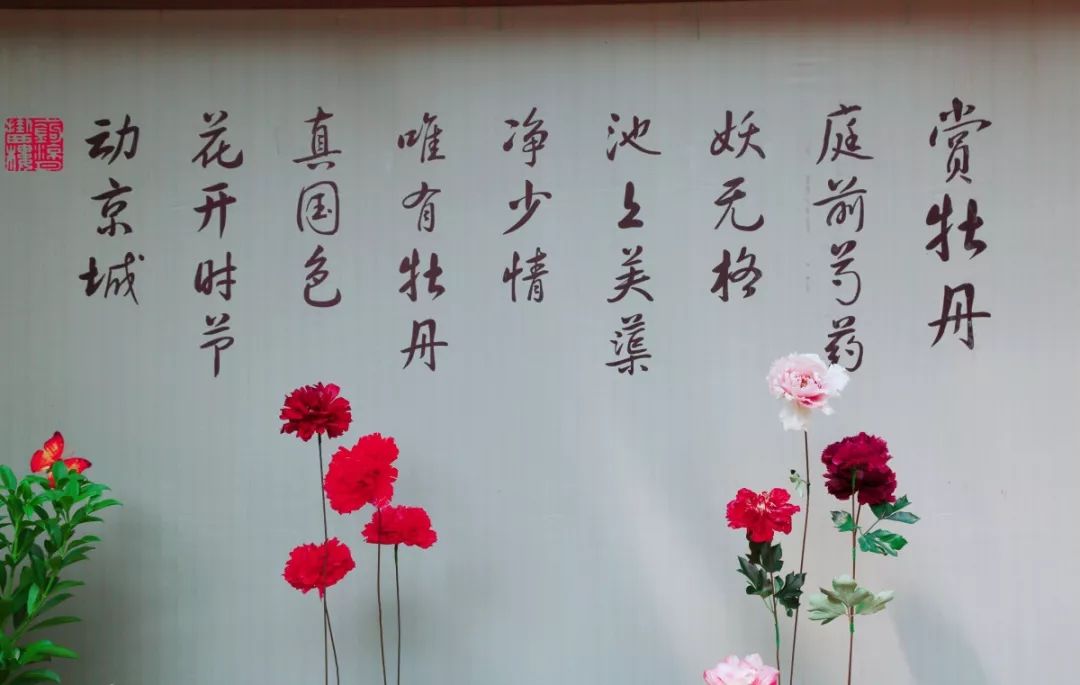 赏牡丹
庭前芍药
妖无格
池上芙蕖
净少情
唯有牡丹
真国色
花开时节
动京城